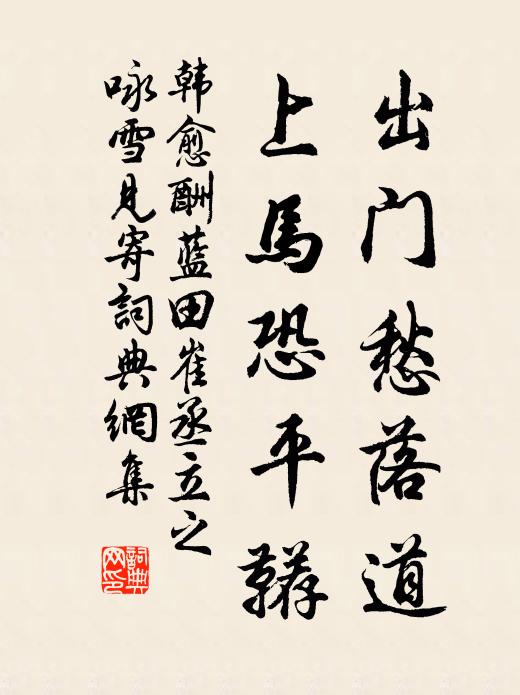 出门愁落道
上馬恐平韉
韩愈酬藍田崔丞立之
咏雪見寄詞典網集
詞典网印